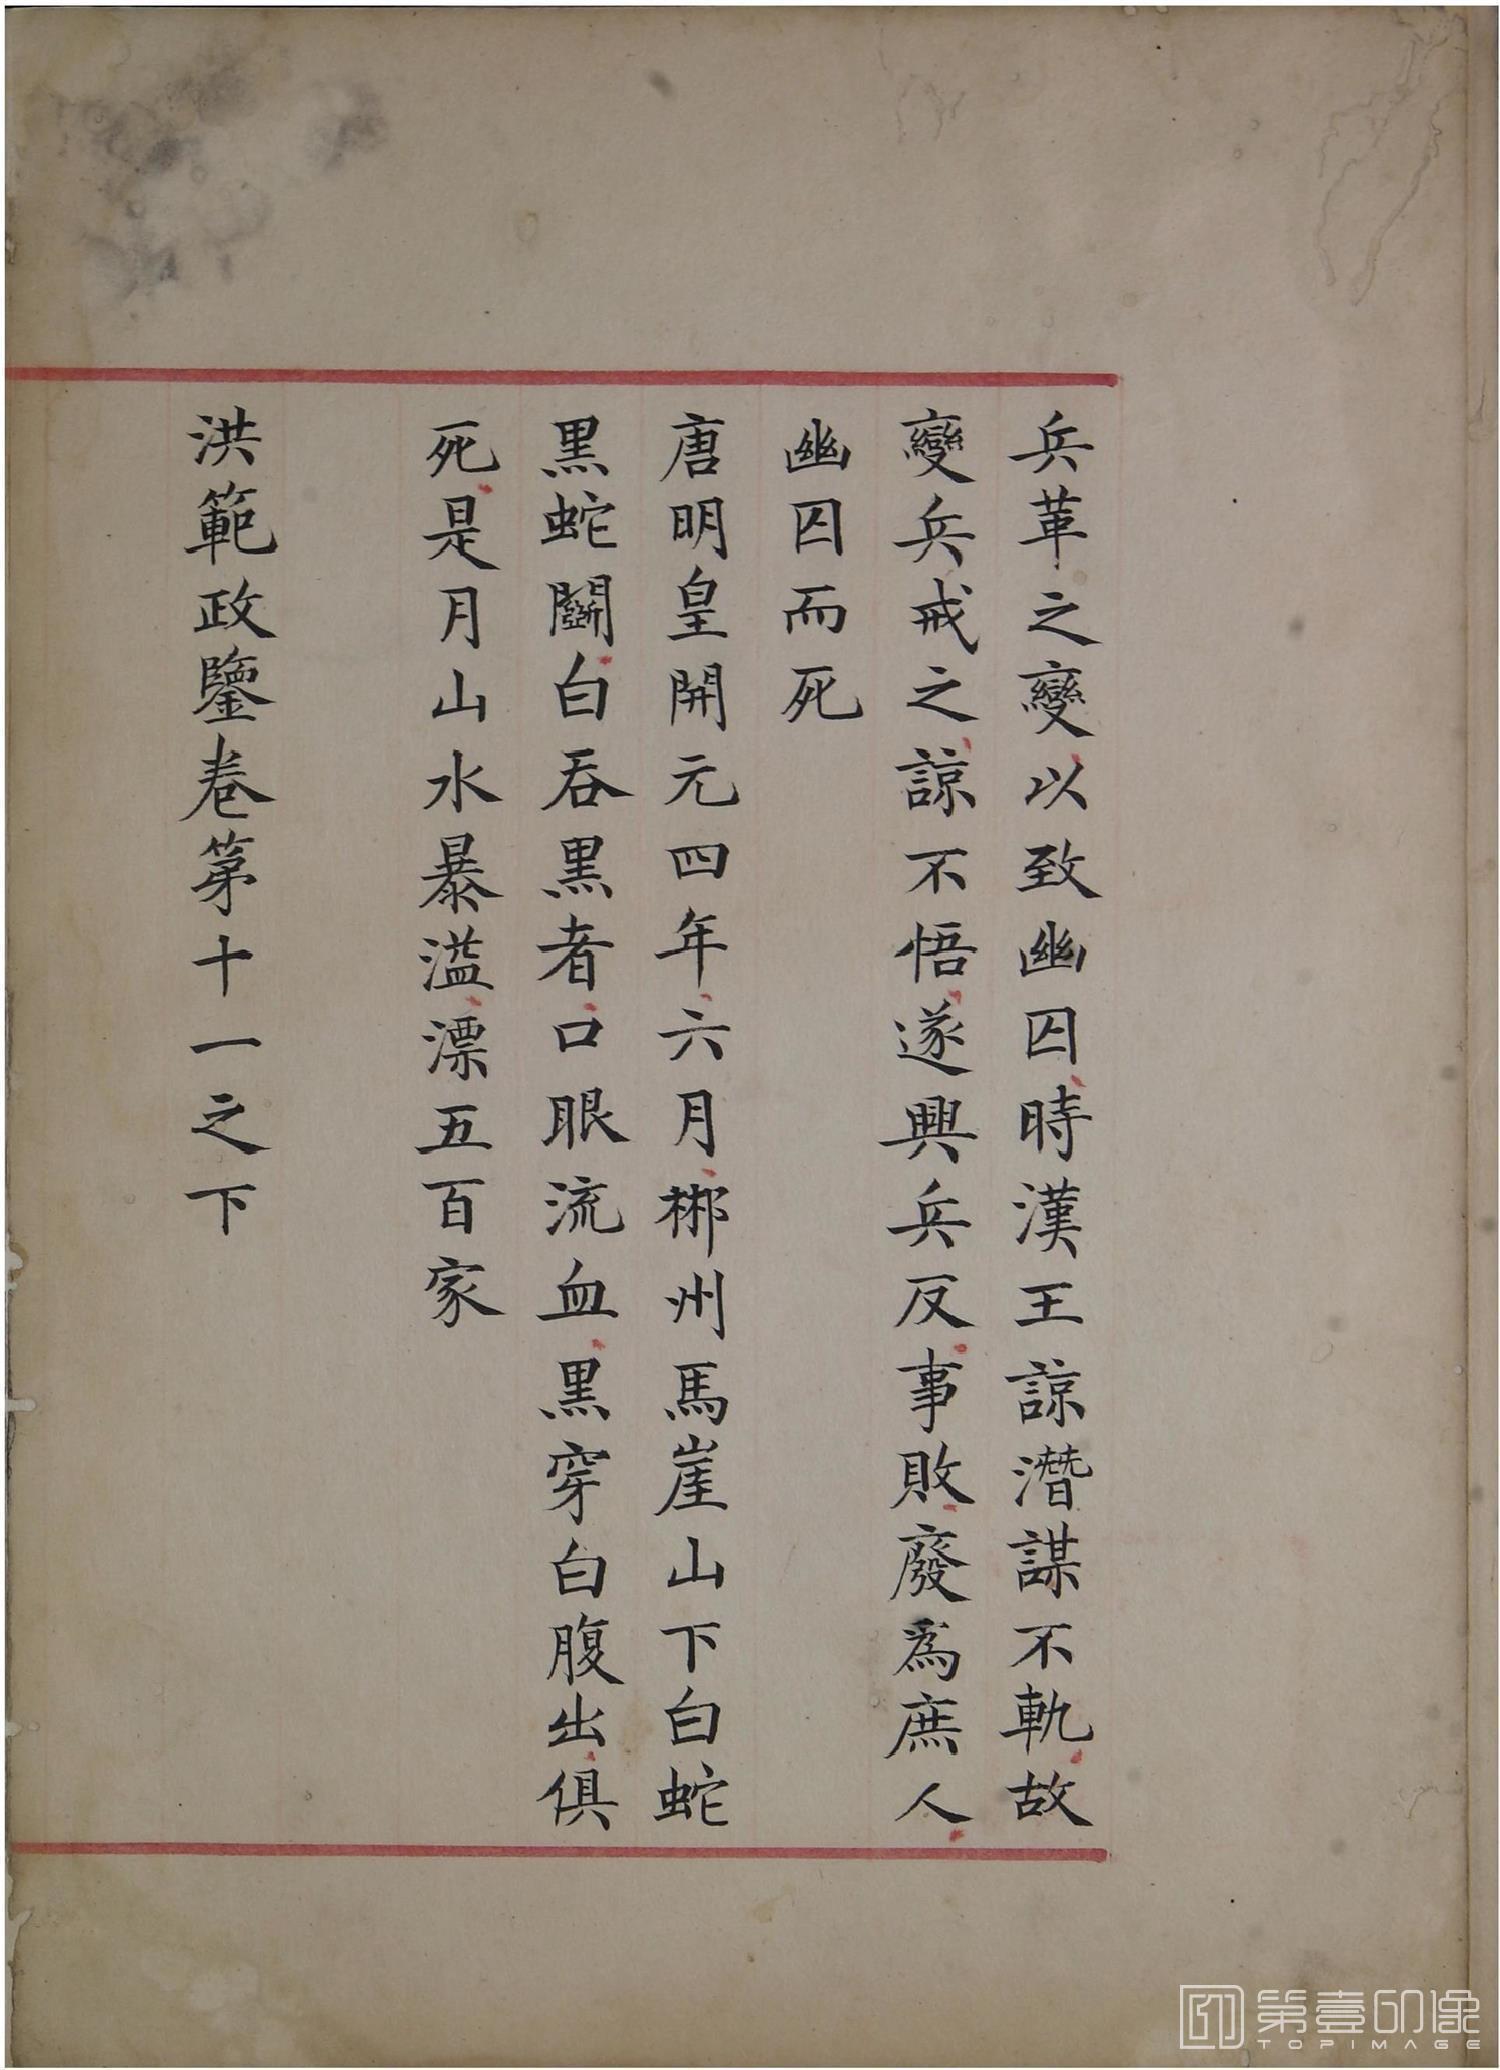 兵革之變以致幽囚時漢王諒潛謀不軌故
變兵戒之諒不悟遂興兵反事敗廢為庶人
幽囚而死
唐明皇開元四年六月郴州馬崖山下白蛇
黑蛇鬭白吞黑者口眼流血黑穿白腹出俱
死是月山水暴溢漂五百家
洪範政鑒卷第十一之下
第壹印像
TOPIMAGE